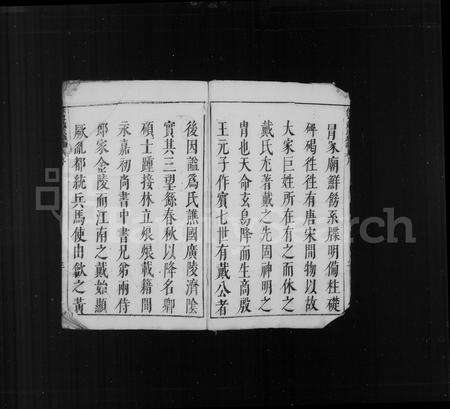 冒家廟鮮飭系牒明備柱礎
碑碣徃徃有唐宋間物以故
大家巨姓所在有之而休之
戴氏尤著戴之先因神明之
冑也天命玄鳥降而生商殷
王元子作賓七世有戴公者
後因謚爲氏譙國廣陵濟陰
實其三望餘春秋以降名卿
碩士踵接林立烺烺載籍間
永嘉初尚書中書兄弟兩侍
郎家金陵而江南之戴始顯
厥亂都統兵馬使由歙之黃